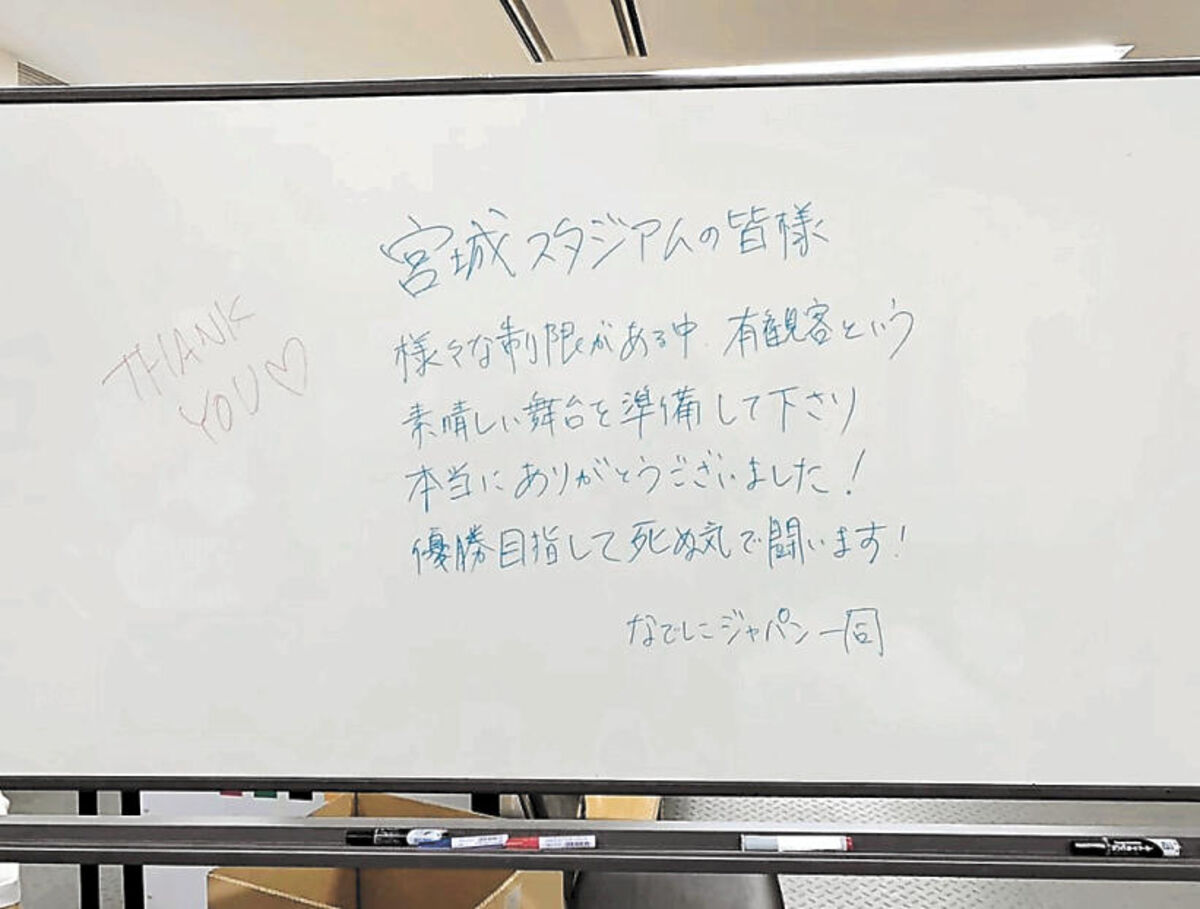 宮城スタジアムの皆様
様々な制限がある中、有観客という
素晴しい舞台を準備して下さり
本当にありがとうございました!
優勝目指して死ぬ気で闘います!
なでしこジャパン一同
THANK
YOU♡